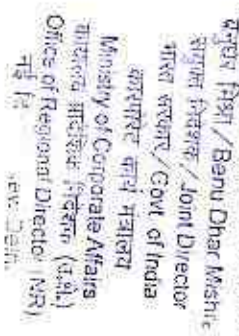 बेनुधर मिश्रा / Benu Dhar Mishra
संयुक्त निदेशक / Joint Director
भारत सरकार / Govt. of India
कारपोरेट कार्य मंत्रालय
Ministry of Corporate Affairs
कार्यालय प्रादेशिक निदेशक (उ.क्षे.)
Office of Regional Director (NR)
नई New Delhi